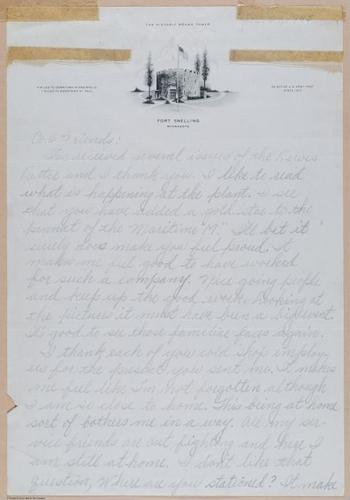 THE HISTORIC ROUND TOWER
FORT SNELLING
MINNESOTA
Friends:
received several issues of the
and I thank you. I like to read
what is happening at the plant. I see
that you have added a gold star to the
pennant of the Maritime "M". I'll bet it
surely does make you feel proud. It
makes me feel good to have worked
for such a company. Nice going people
and keep up the good work. Looking at
the pictures it must have been a big event.
It's good to see those familiar faces again.
I thank each of you cold shop employ-
es for the present you sent me. It makes
me feel like I'm not forgotten although
I am so close to home. This being at home
sort of bothers me in a way. All my ser-
vice friends are out fighting and here I
am still at home. I don't like that
question, Where are you stationed? It make